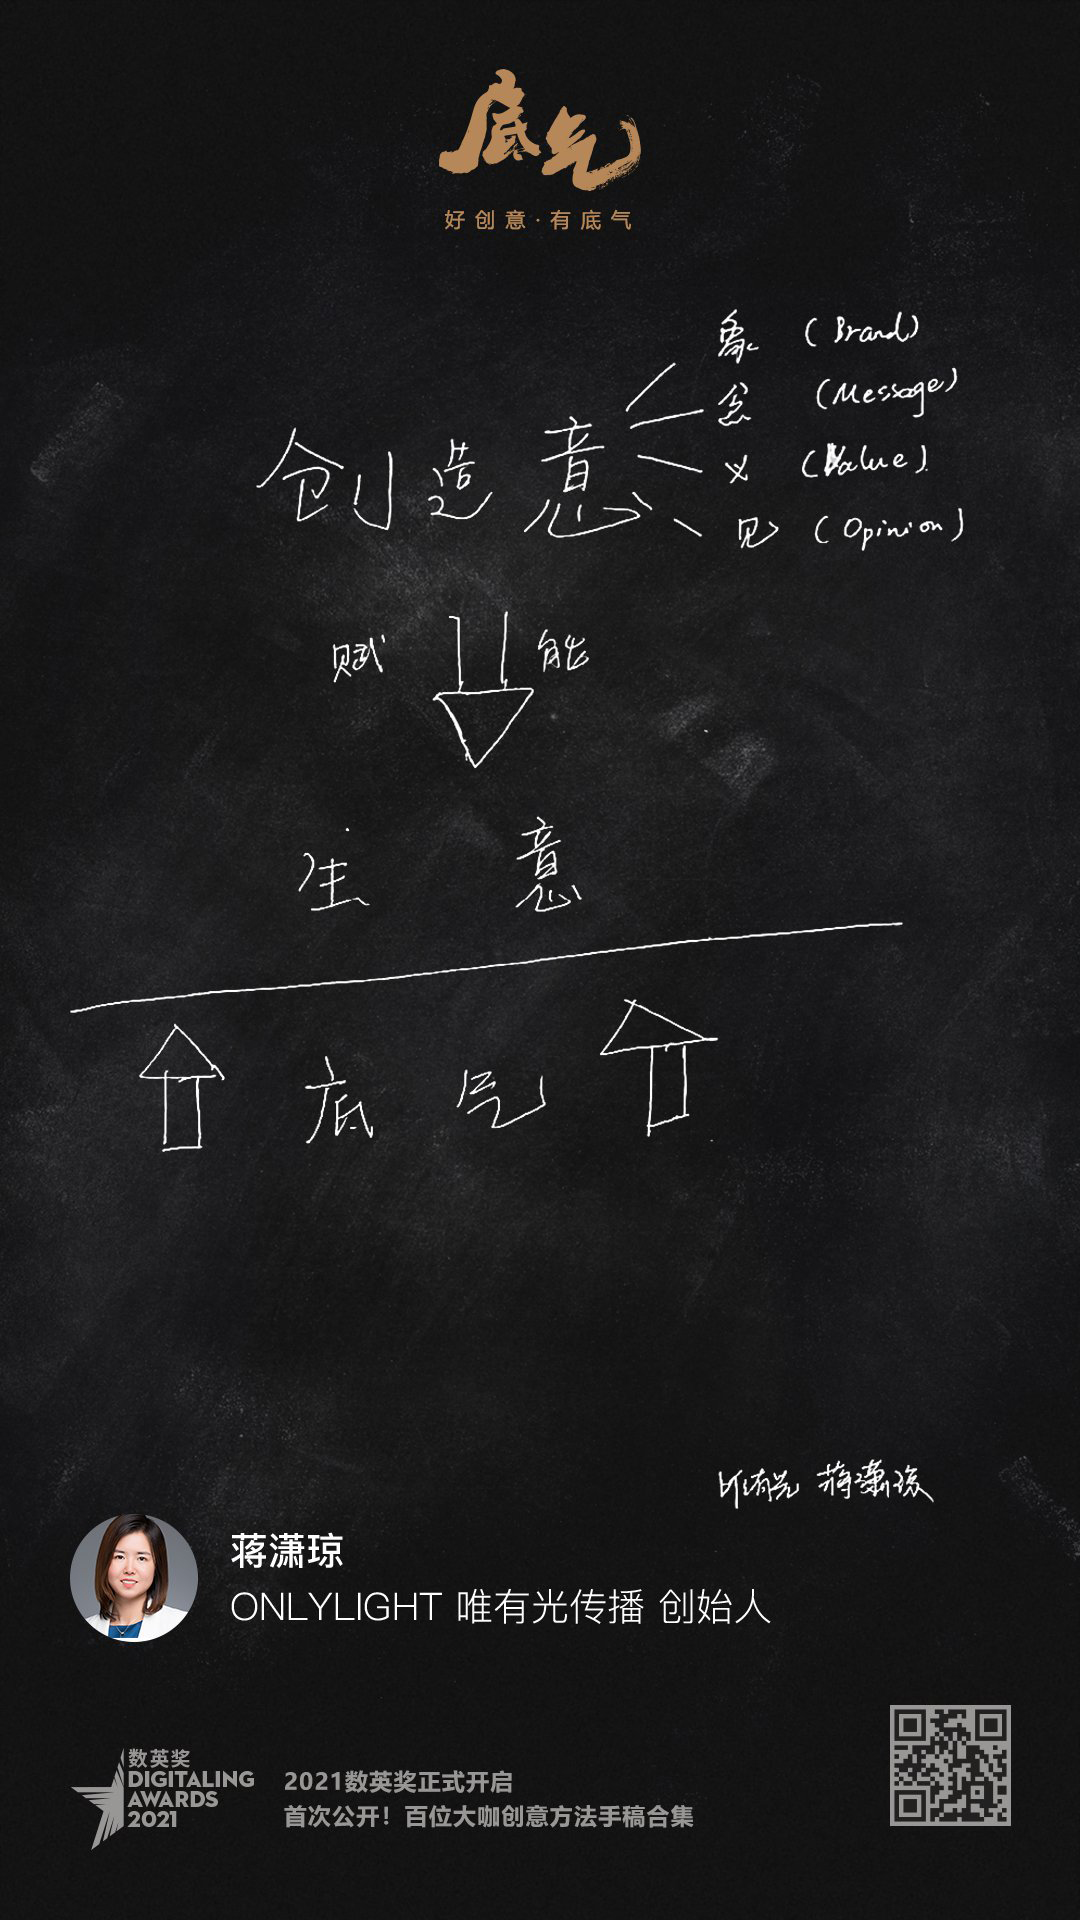 底气
好创意·有底气
象 (Brand)
念 (Message)
创造意
义 (Value)
见 (Opinion)
赋能
生意
底气
唯有光 蒋潇琼
蒋潇琼
ONLYLIGHT 唯有光传播 创始人
数英奖
DIGITALING
AWARDS
2021
2021数英奖正式开启
首次公开！百位大咖创意方法手稿合集